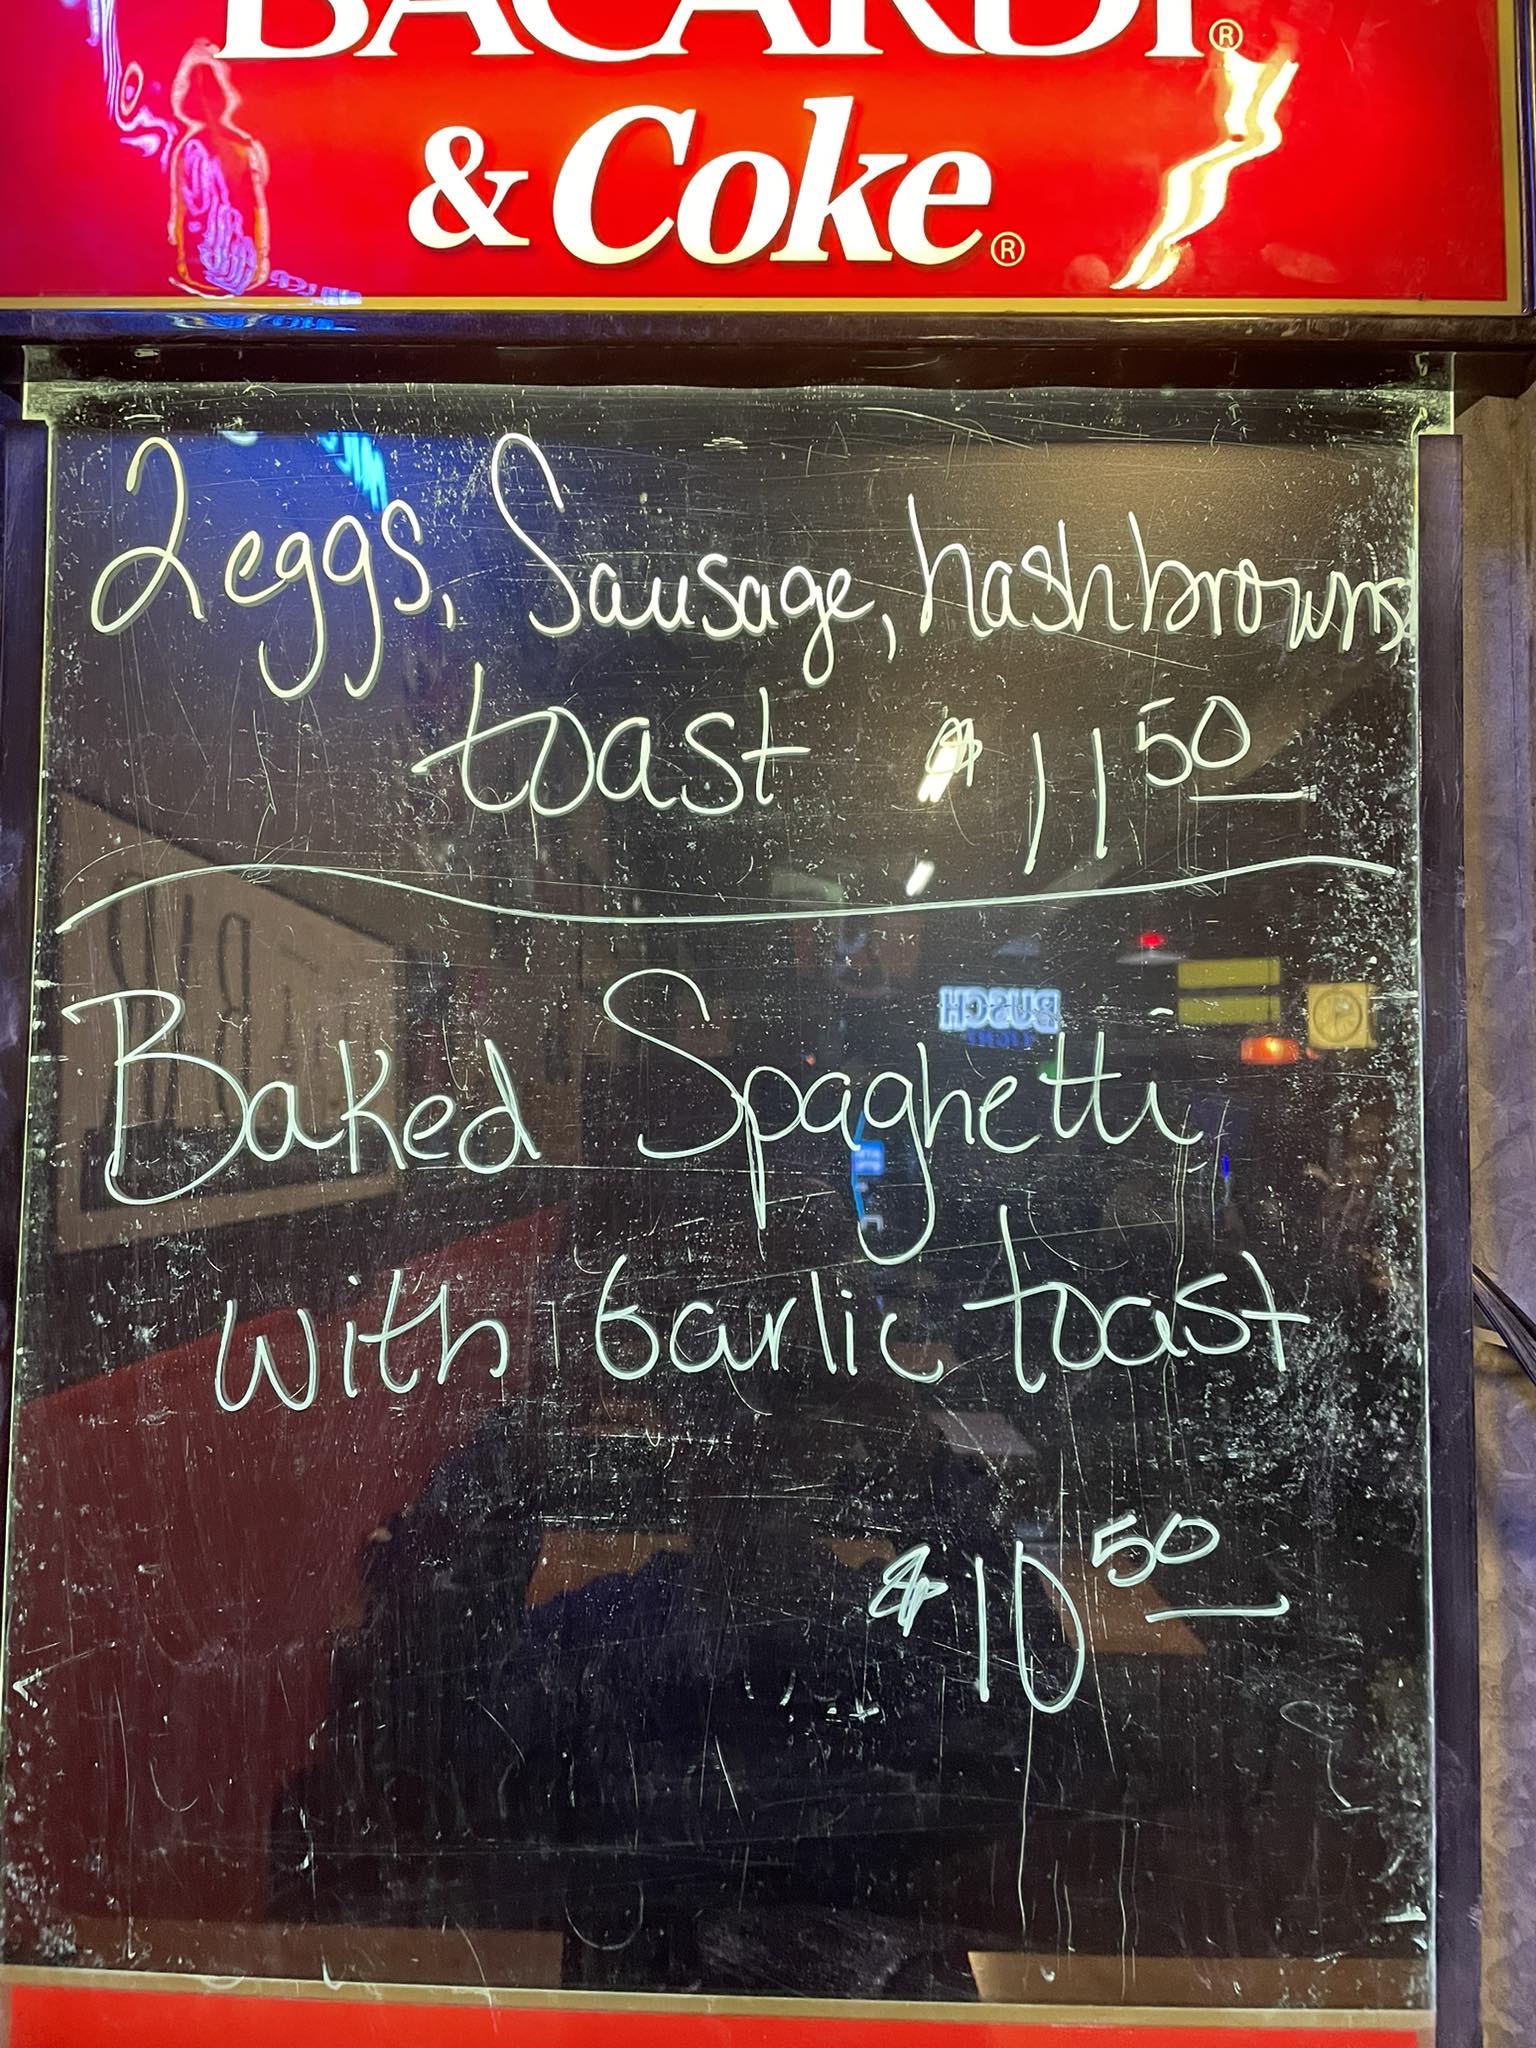 BACARDI®
& Coke®
2 eggs, Sausage, hashbrowns
toast $11 50
Baked Spaghetti
with Garlic toast
$10 50
BUSCH
LIGHT